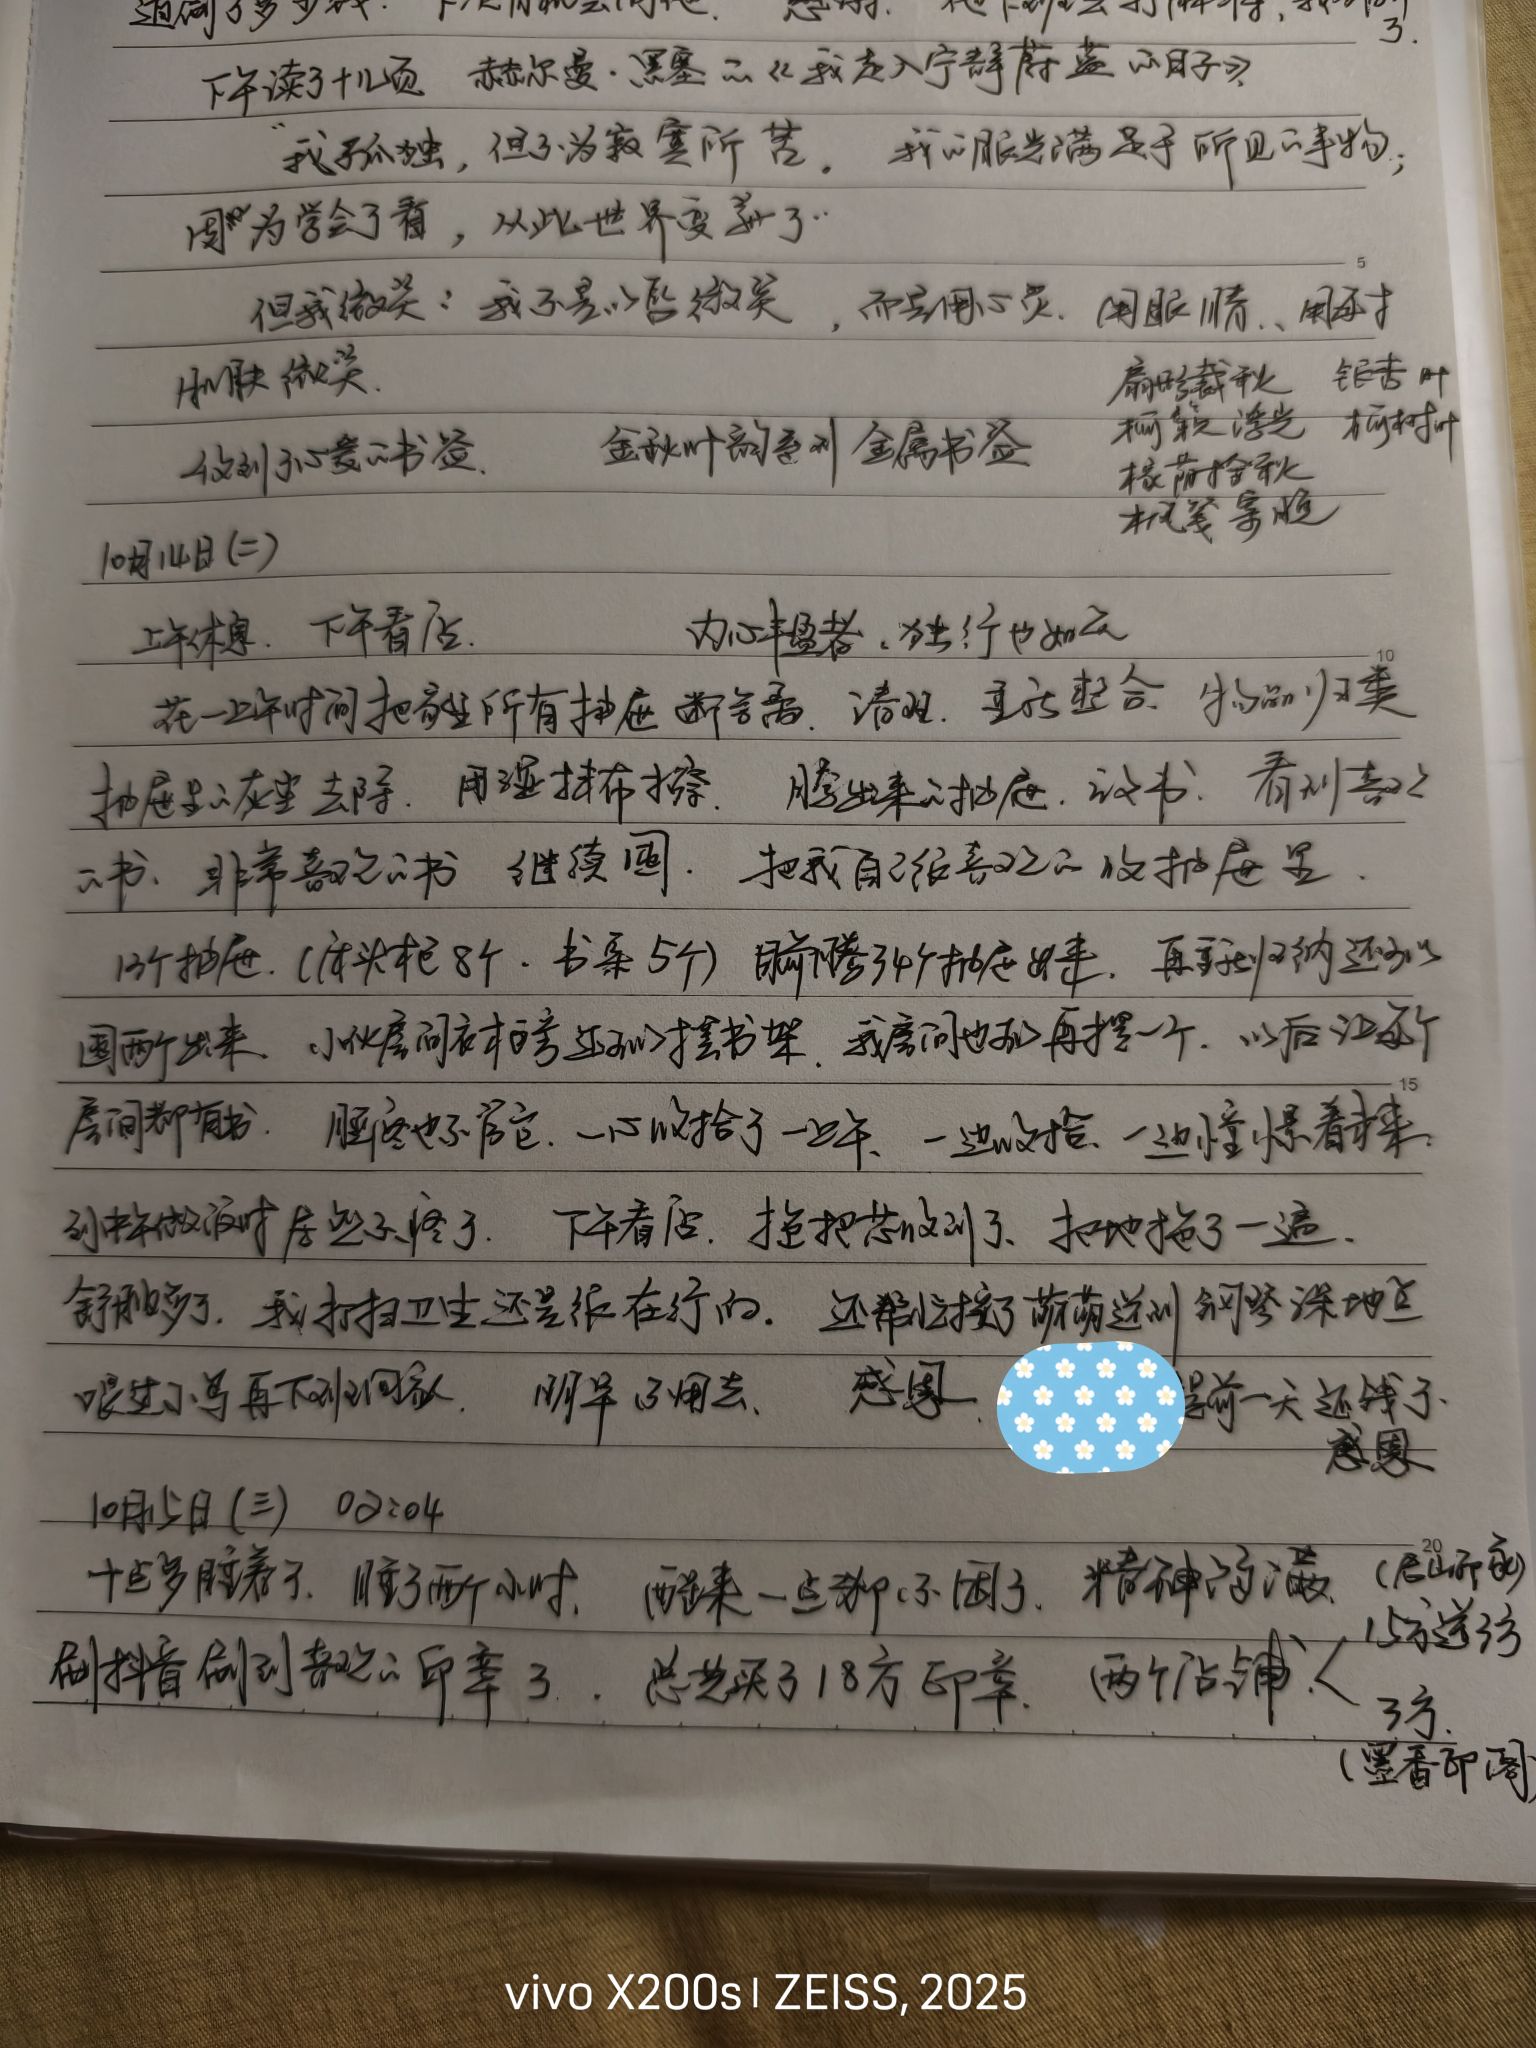 下午读了十几页 赫尔曼·黑塞的《我走入宁静蔚蓝的日子》
“我孤独，但不为寂寞所苦。 我的眼光满足于所见的事物；
因为学会了看，从此世界变新了”
但我微笑：我不是以唇微笑，而是用心灵、用眼睛、用每寸
肌肤微笑.
收到了心爱的书签. 金秋叶韵系列 金属书签
扇叶裁秋 银杏叶
浮光
橡荫拾秋
枫笺寄晚
10月14日(二)
上午休息. 下午看店. 内心丰盈者、独行也如众
花一上午时间把家里所有抽屉断舍离、清理、重新整合、物品归类
抽屉里的灰尘去除. 用湿抹布擦. 腾出来的抽屉、放书. 看到喜欢
的书、非常喜欢的书 继续囤. 把我自己很喜欢的放抽屉里.
13个抽屉. (床头柜8个. 书桌5个) 目前腾了4个抽屉出来. 再重新归纳还可以
囤两个出来. 小伙房间衣柜旁还可以摆书架. 我房间也可以再摆一个. 以后让每个
房间都有书. 腰疼也不管它. 一心收拾了一上午、一边收拾、一边憧憬着未来.
到中午做饭时居然不疼了. 下午看店. 拖把芯收到了、把地拖了一遍.
舒服多了. 我打扫卫生还是很在行的. 还帮忙接了萌萌送到钢琴课地点
明早不用去、 感恩 提前一天还钱了.
感恩
10月15日(三) 02:04
十点多睡着了. 睡了两个小时. 醒来一点都不困了. 精神饱满.
刷抖音刷到喜欢的印章了. 总共买了18方印章. 两个店铺.
15方送3方
3方.
(墨香印阁)